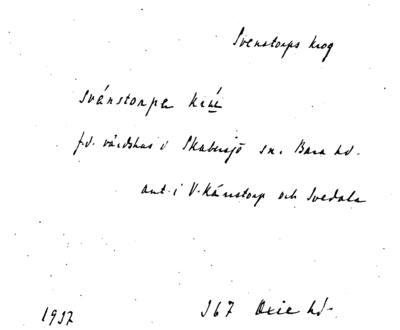 Svenstorps krog
Svánstorpa
f.d. värdshus i Skabersjö sn. Bara hd.
ant. i V. Kärrstorp och Svedala
1937 367 Oxie hd